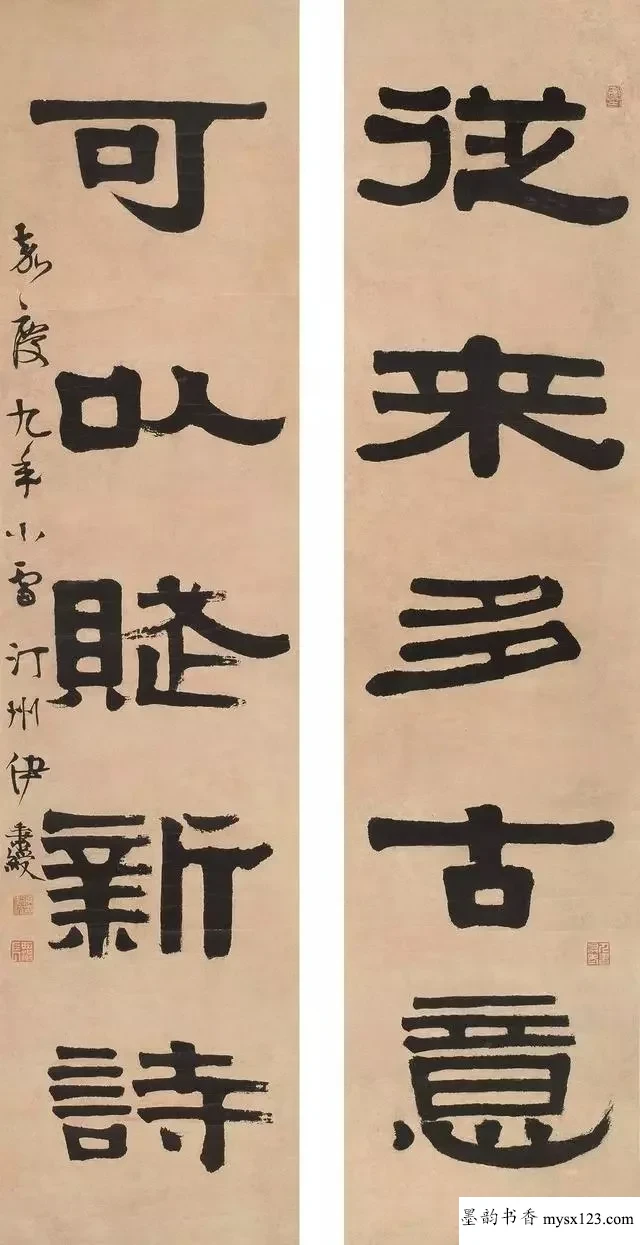 從来多古意
可以賦新詩
嘉慶九年小雪汀州伊秉綬
墨韵书香 mysx123.com